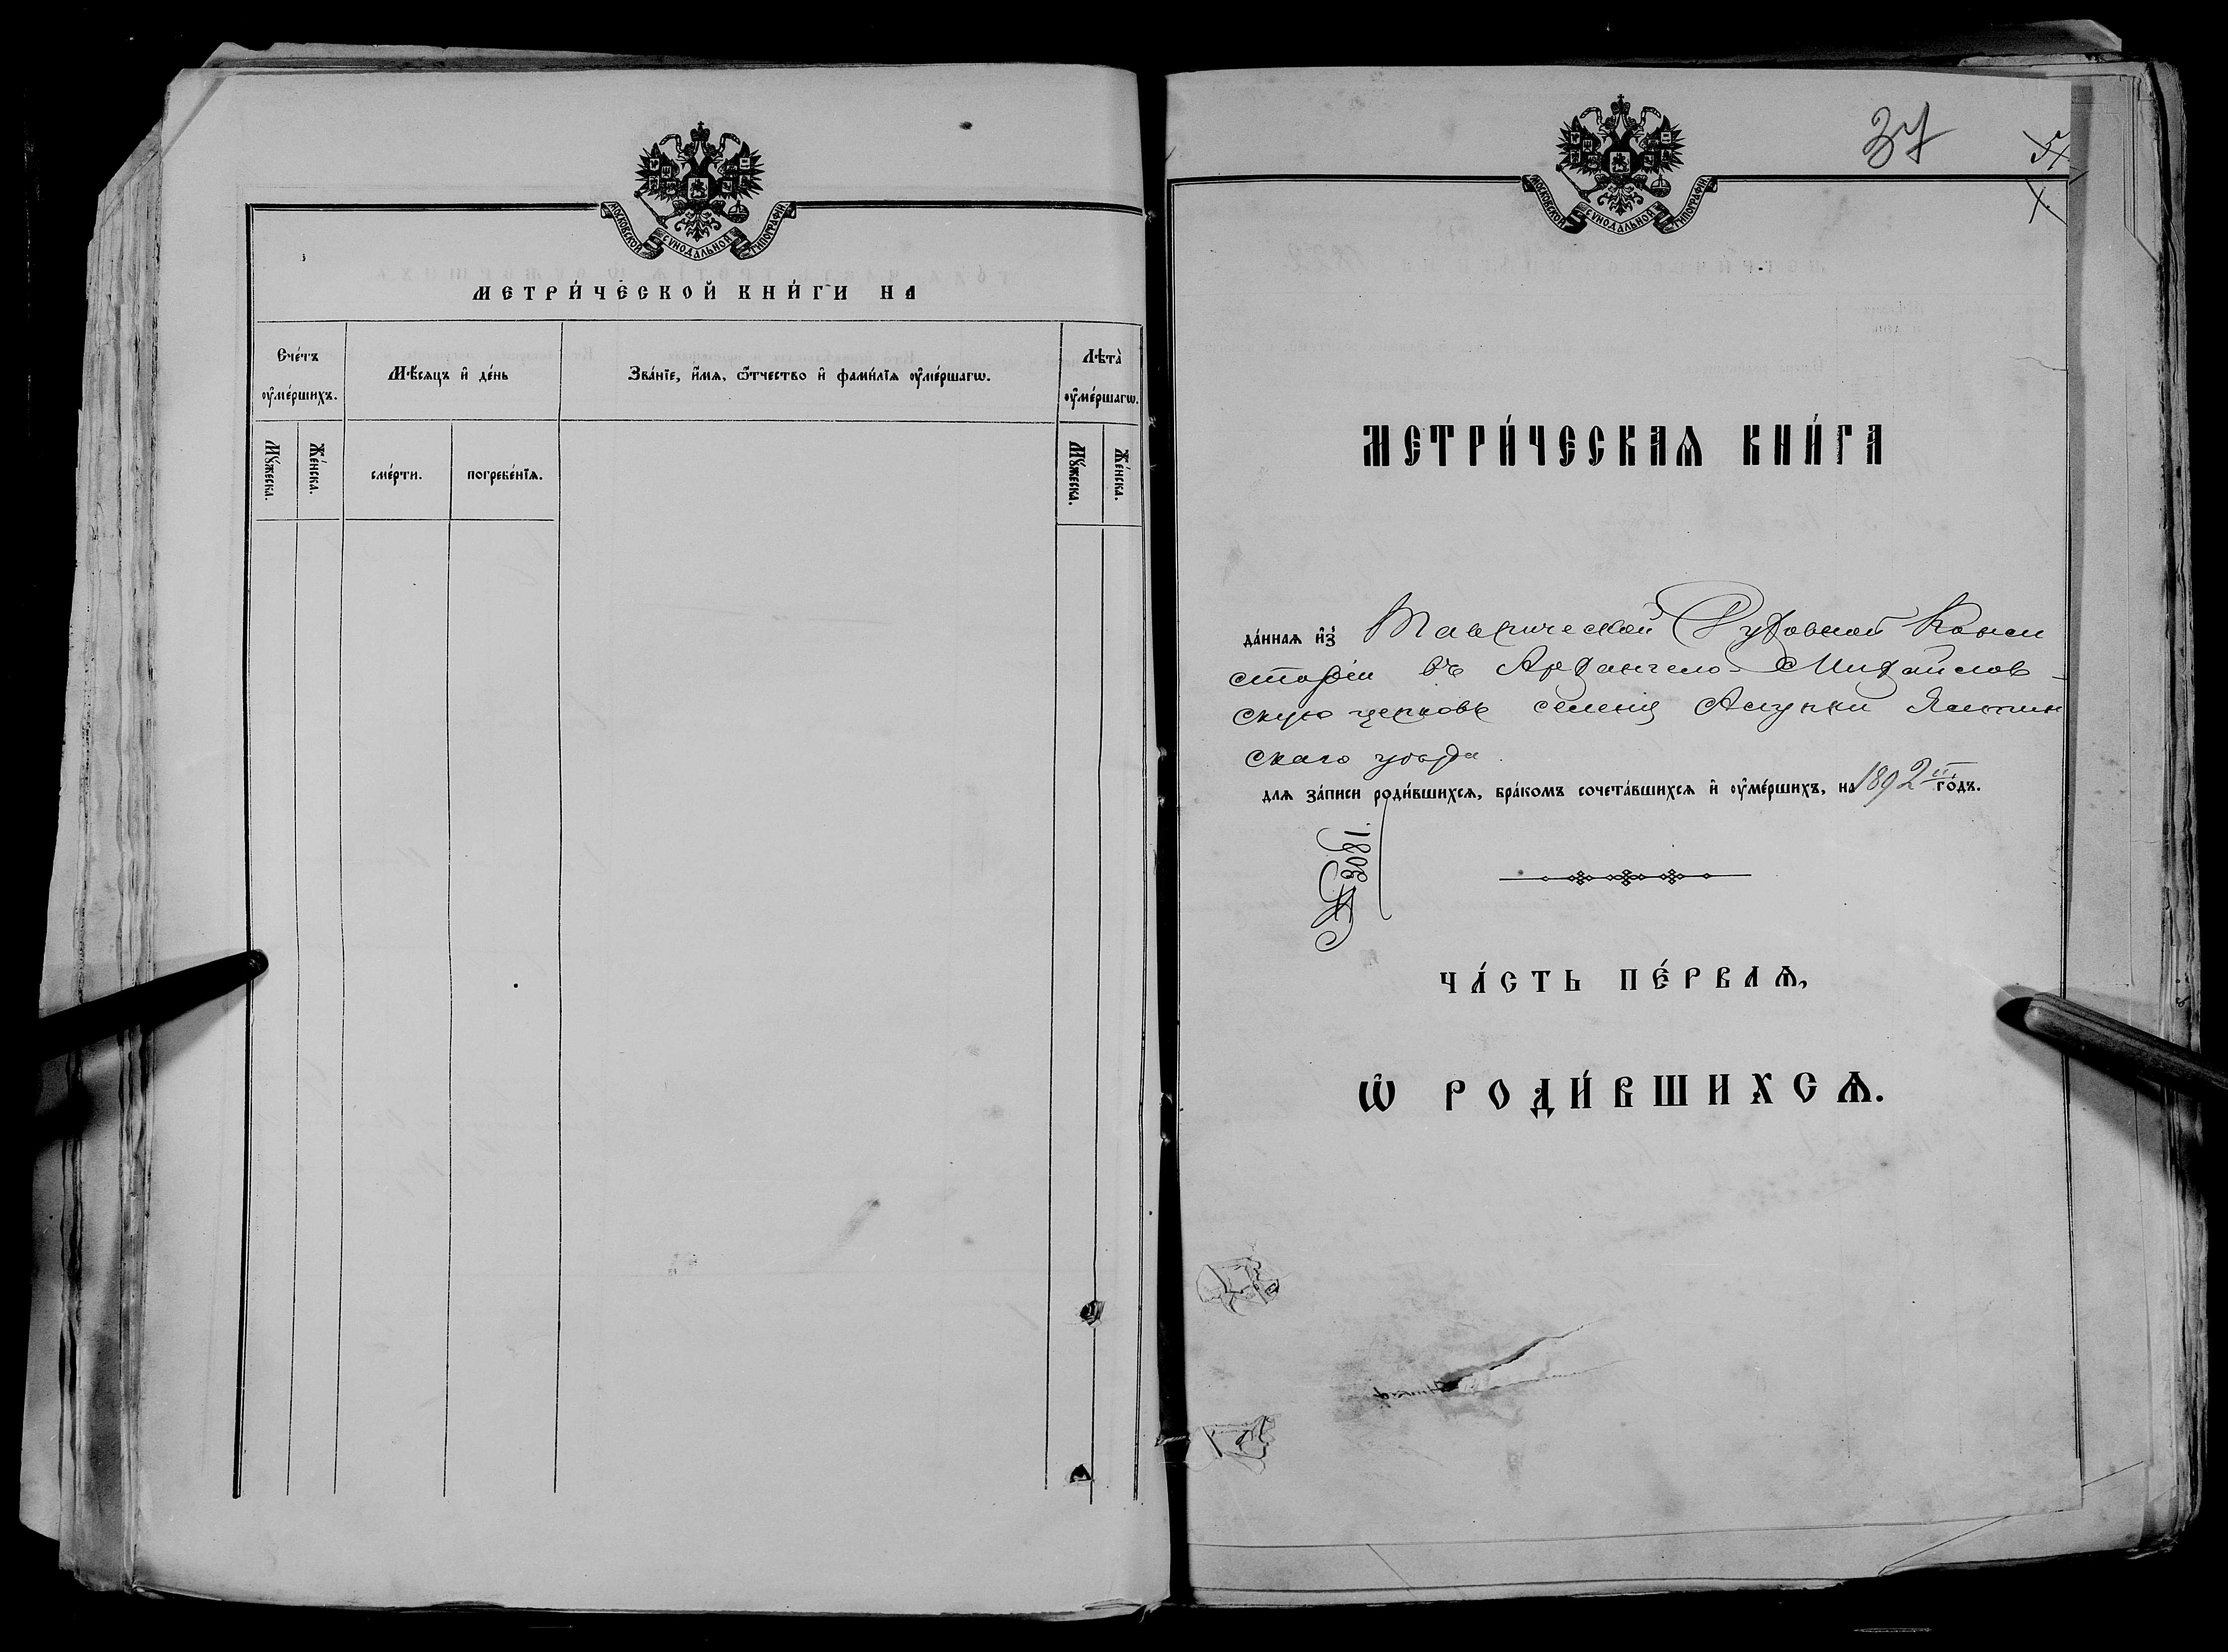 МОСКОВСКОЙ СѴНОДАЛЬНОЙ ТИПОГРАФІИ
МЕТРИ́ЧЕСКОЙ КНИ́ГИ НА
Сче́тъ оу҆ме́ршихъ.
Мѣ́сяцъ и҆ де́нь
Зва́нїе, и҆́мѧ, ѻ҆́тчество и҆ фами́лїѧ оу҆ме́ршагѡ.
Лѣта̀ оу҆ме́ршагѡ.
Мꙋ́жеска.
Же́нска.
сме́рти.
погребе́нїѧ.
Мꙋ́жеска.
Же́нска.
37
МОСКОВСКОЙ СѴНОДАЛЬНОЙ ТИПОГРАФІИ
МЕТРИ́ЧЕСКАѦ КНИ́ГА
да́ннаѧ и҆з̾ Таврической Духовной Конси
сторіи въ Архангело-Михайлов-
скую церковь селенія Алупки Ялтин
скаго уѣзда
длѧ за́писи роди́вшихсѧ, бра́комъ сочета́вшихсѧ и҆ оу҆ме́ршихъ, на 1892 й го́дъ.
№ 3081.
ЧА́СТЬ ПЕ́РВАѦ,
Ѡ҆ РОДИ́ВШИХСѦ.